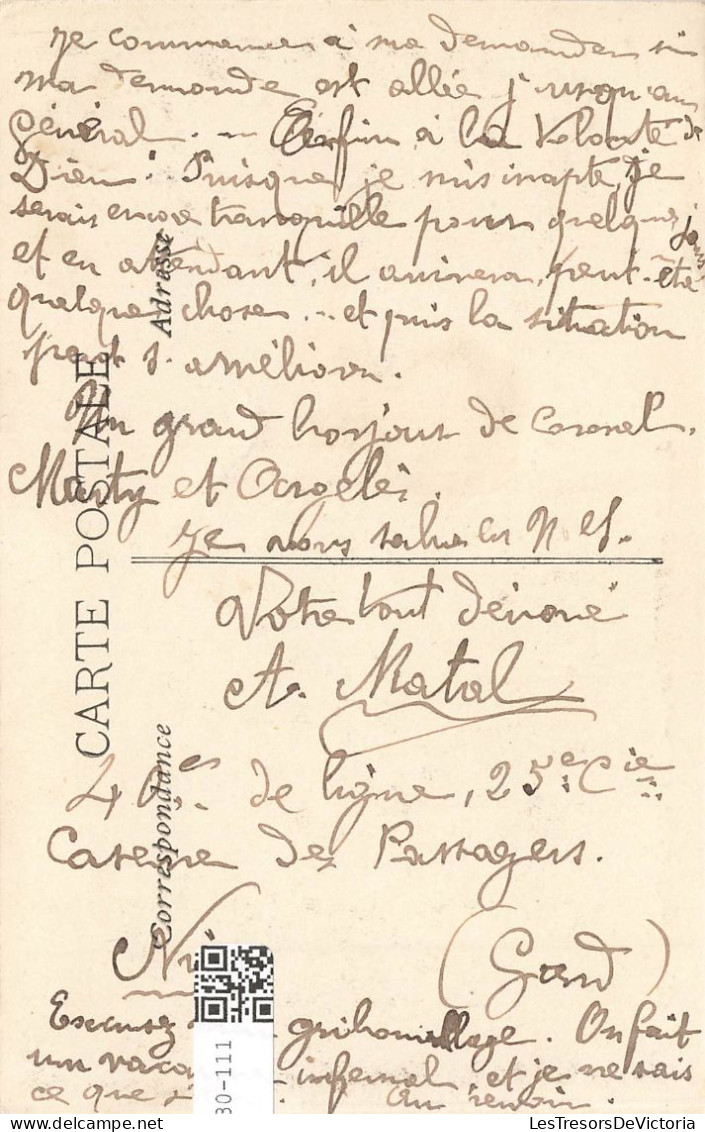 Je commence à me demander si
ma demande est allée jusqu'au
Général. — Enfin à la Volonté de
Dieu! Puisque je suis inapte, je
serais encore tranquille pour quelques jours
et en attendant, il arrivera peut-être
quelque chose... et puis la situation
peut s'améliorer.
Un grand bonjour de Coronel,
Marty et Argelès.
Je vous salue en N. S.
Votre tout dévoué
A. Matal
40es de ligne, 25e Cie
Caserne des Passagers.
(Gard)
Excusez griboullage. On fait
un infernal, et je ne sais
ce que Au revoir.
CARTE POSTALE
Correspondance
Adresse
30-111
LesTresorsDeVictoria